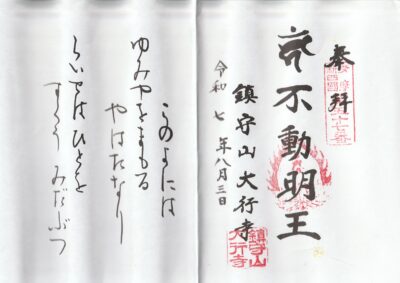 奉拝
不動明王
鎮守山大行寺
令和七年八月三日
鎮守山
大行寺
このよには
ゆみやをまもる
やはたなり
らいせはひとを
すくう みだぶつ